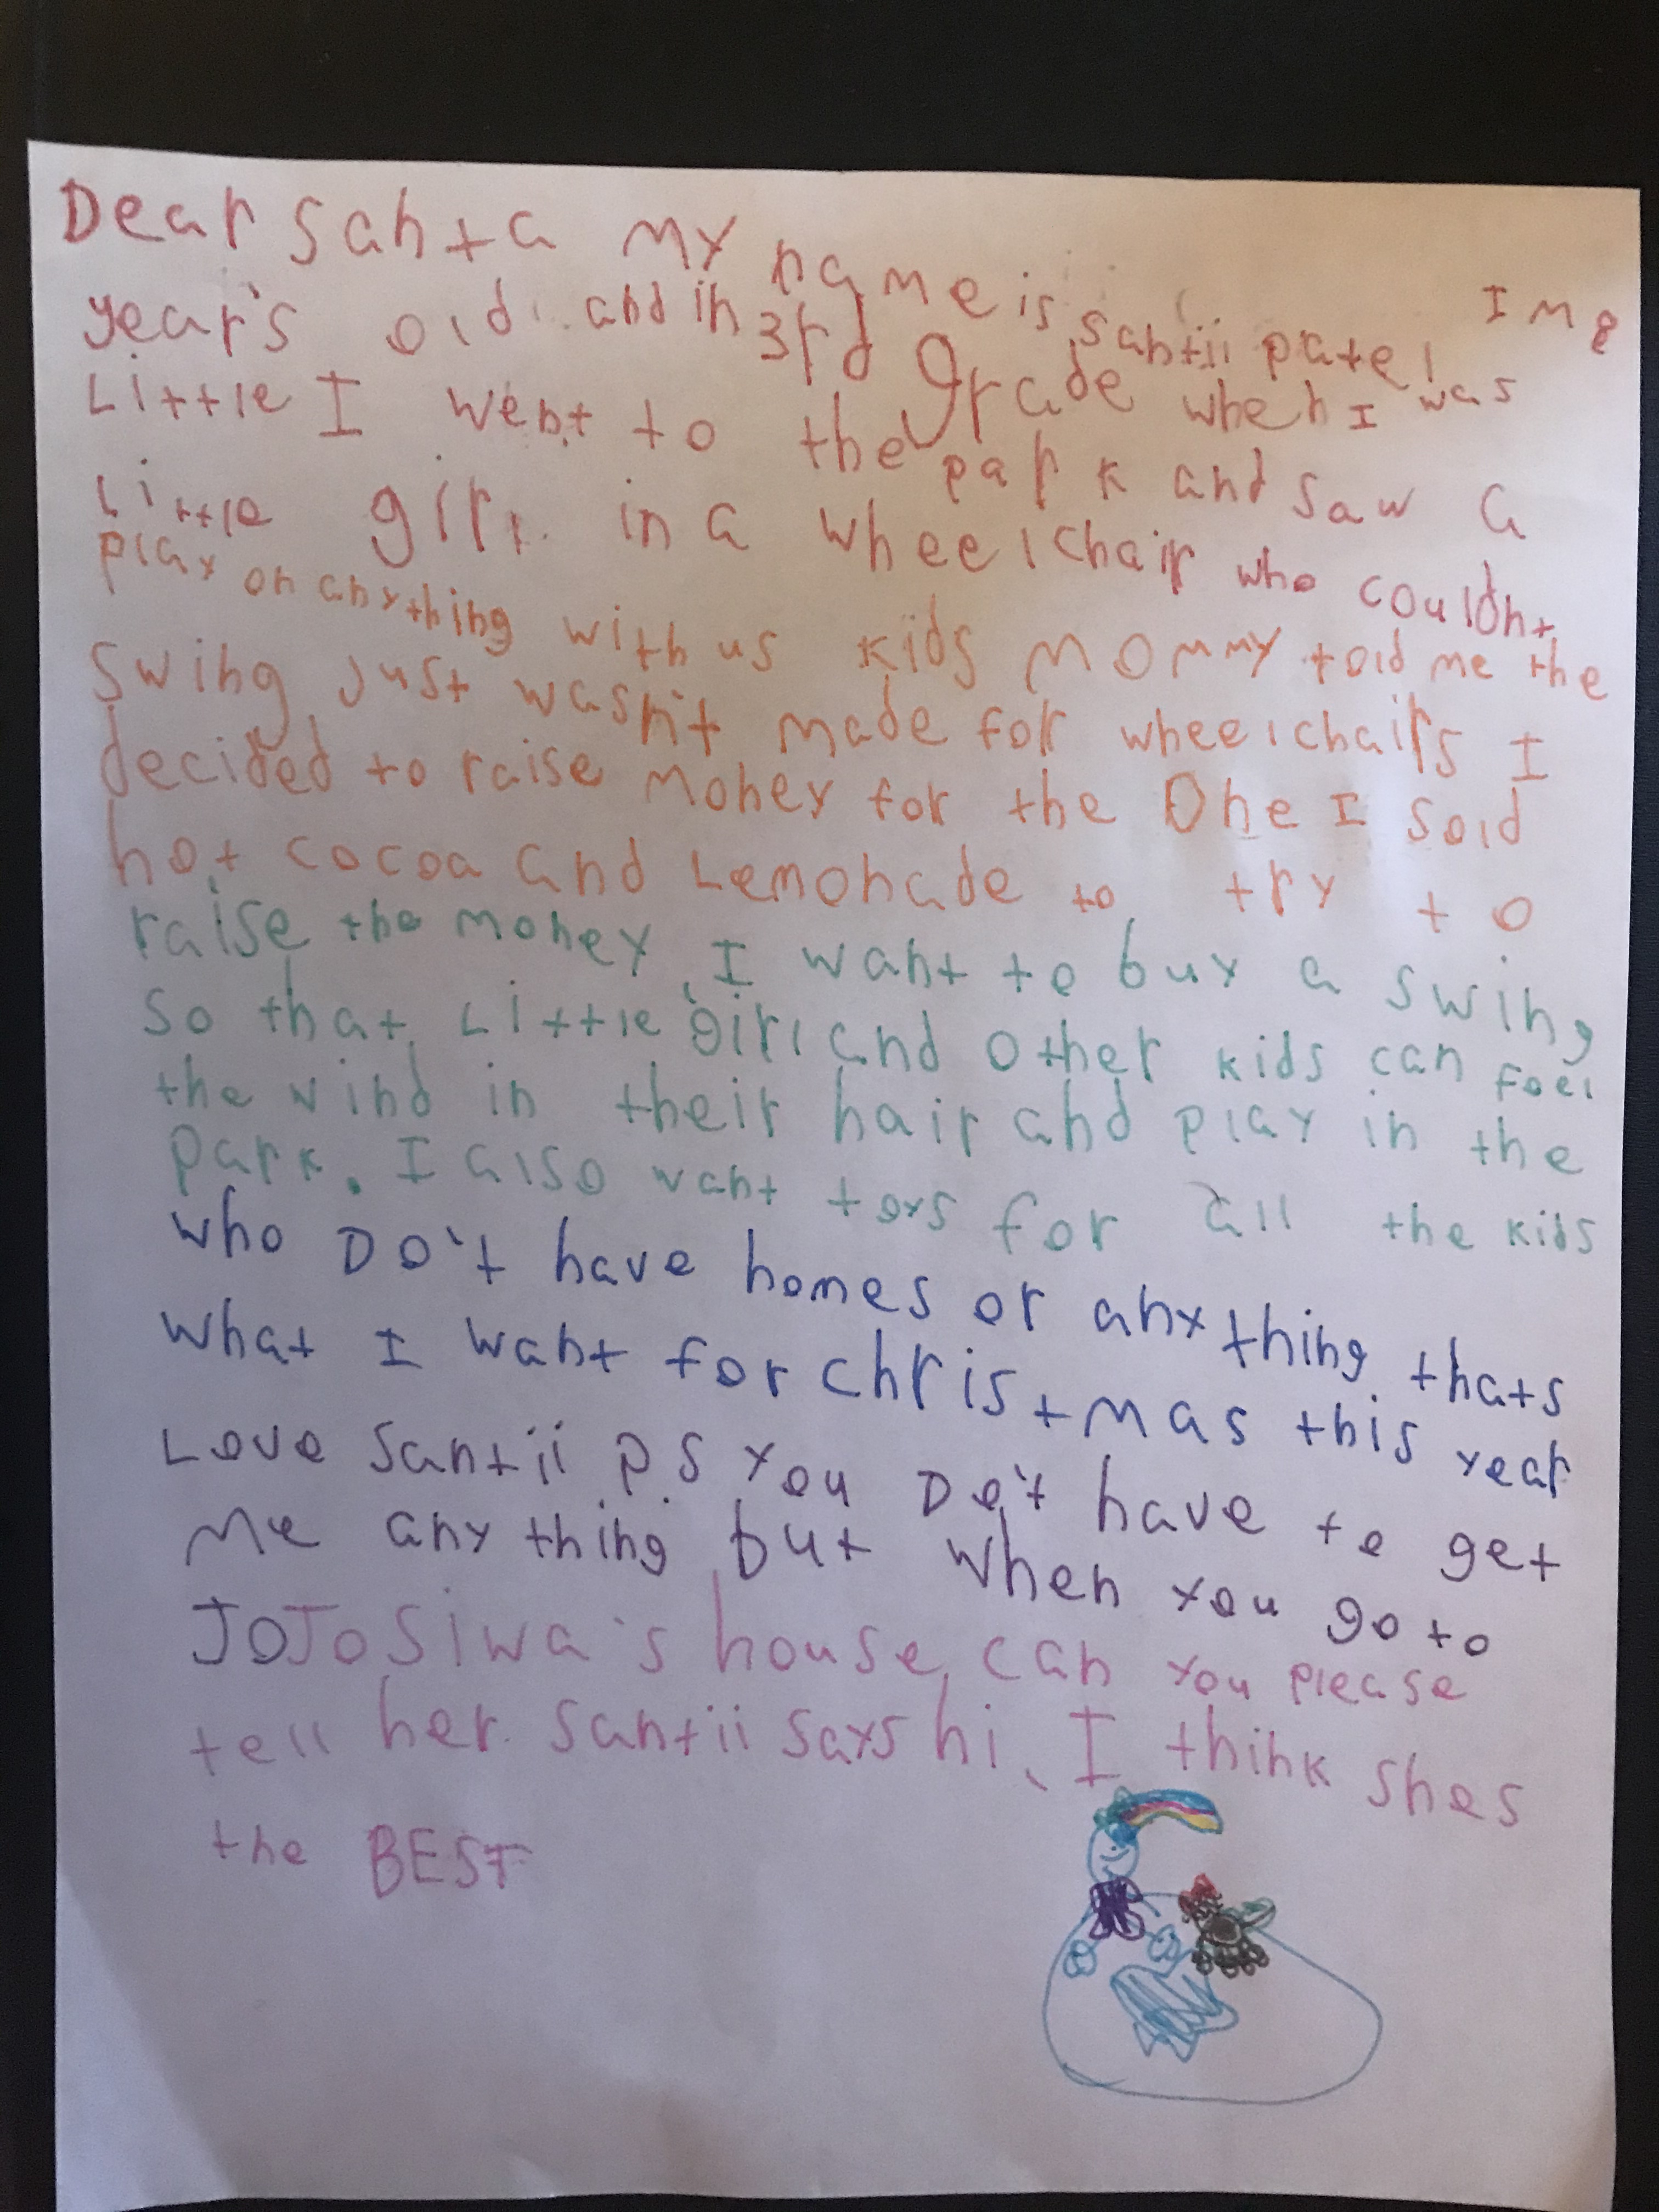 Dear Santa My name is santii patel Im 8
year's old and in 3rd grade when I was
Little I went to the park and saw a
Little girl in a wheelchair who couldnt
play on anything with us kids Mommy told me the
swing just wasn't made for wheelchairs I
decided to raise money for the One I sold
hot cocoa and Lemonade to try to
raise the money, I want to buy a swing
so that Little girl and other kids can feel
the wind in their hair and play in the
park. I also want toys for all the kids
who DO't have homes or anything thats
what I want for christmas this year
Love Santii P.S you Do't have to get
me anything but when you go to
JOJO Siwa's house, can you please
tell her santii says hi, I think shes
the BEST